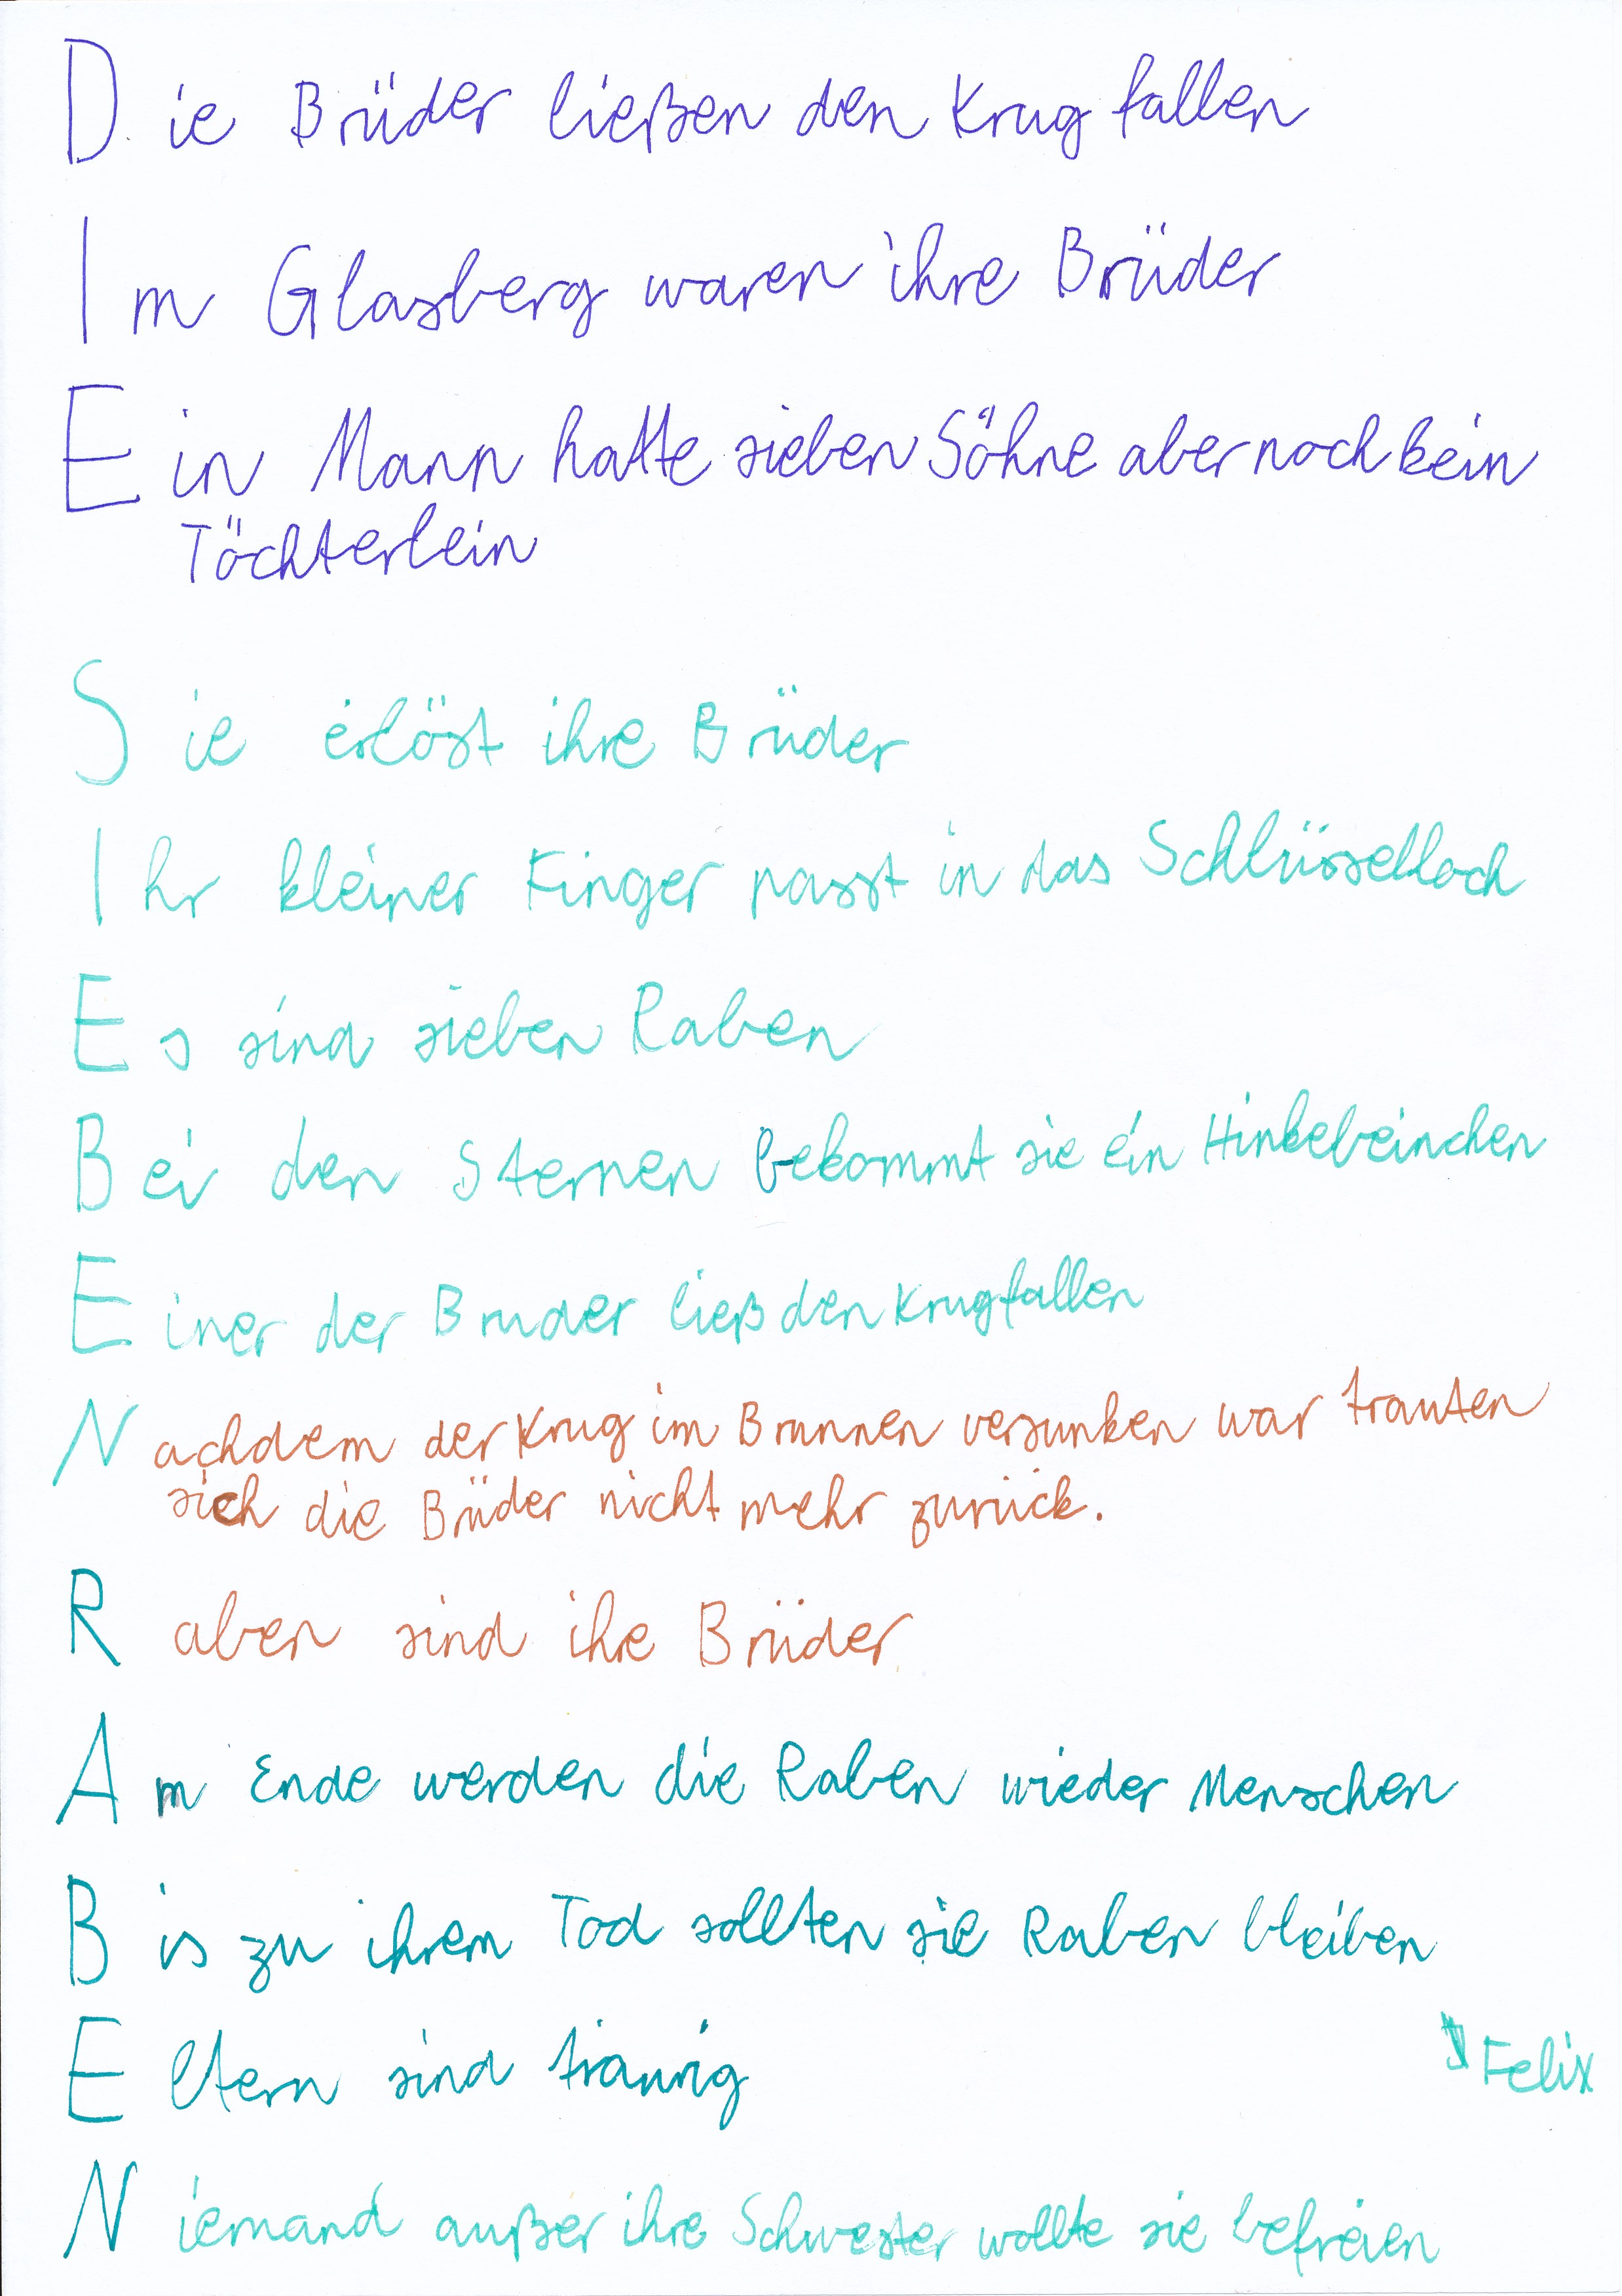 Die Brüder ließen den Krug fallen
Im Glasberg waren ihre Brüder
Ein Mann hatte sieben Söhne aber noch kein
Töchterlein
Sie erlöst ihre Brüder
Ihr kleiner Finger passt in das Schlüsselloch
Es sind sieben Raben
Bei den Sternen bekommt sie ein Hinkebeinchen
Einer der Bruder ließ den Krug fallen
Nachdem der Krug im Brunnen versunken war trauten
sich die Brüder nicht mehr zurück.
Raben sind ihre Brüder
Am Ende werden die Raben wieder Menschen
Bis zu ihrem Tod sollten sie Raben bleiben
Eltern sind traurig
Felix
Niemand außer ihre Schwester wollte sie befreien